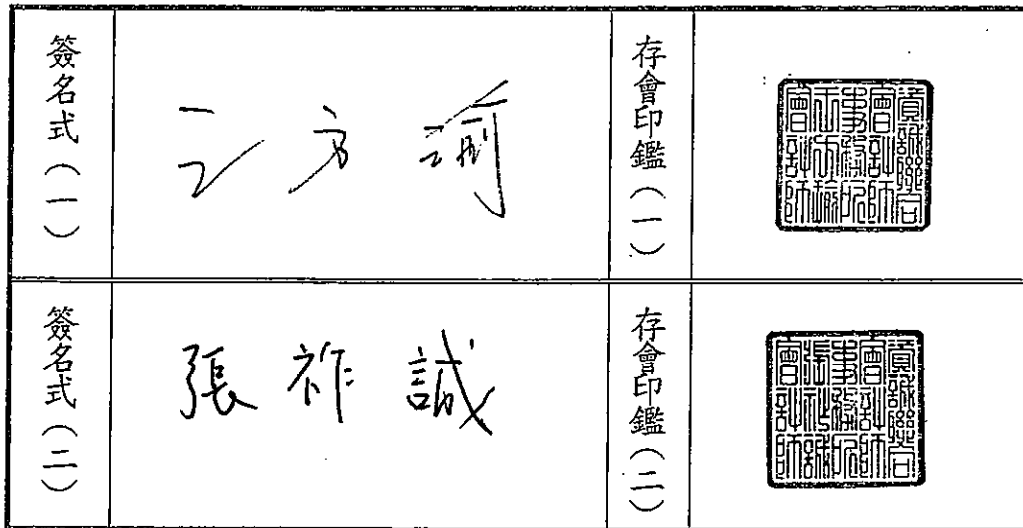 簽名式（一）
王方瑜
存會印鑑（一）
資誠聯合會計師事務所王方瑜會計師
簽名式（二）
張祚誠
存會印鑑（二）
資誠聯合會計師事務所張祚誠會計師